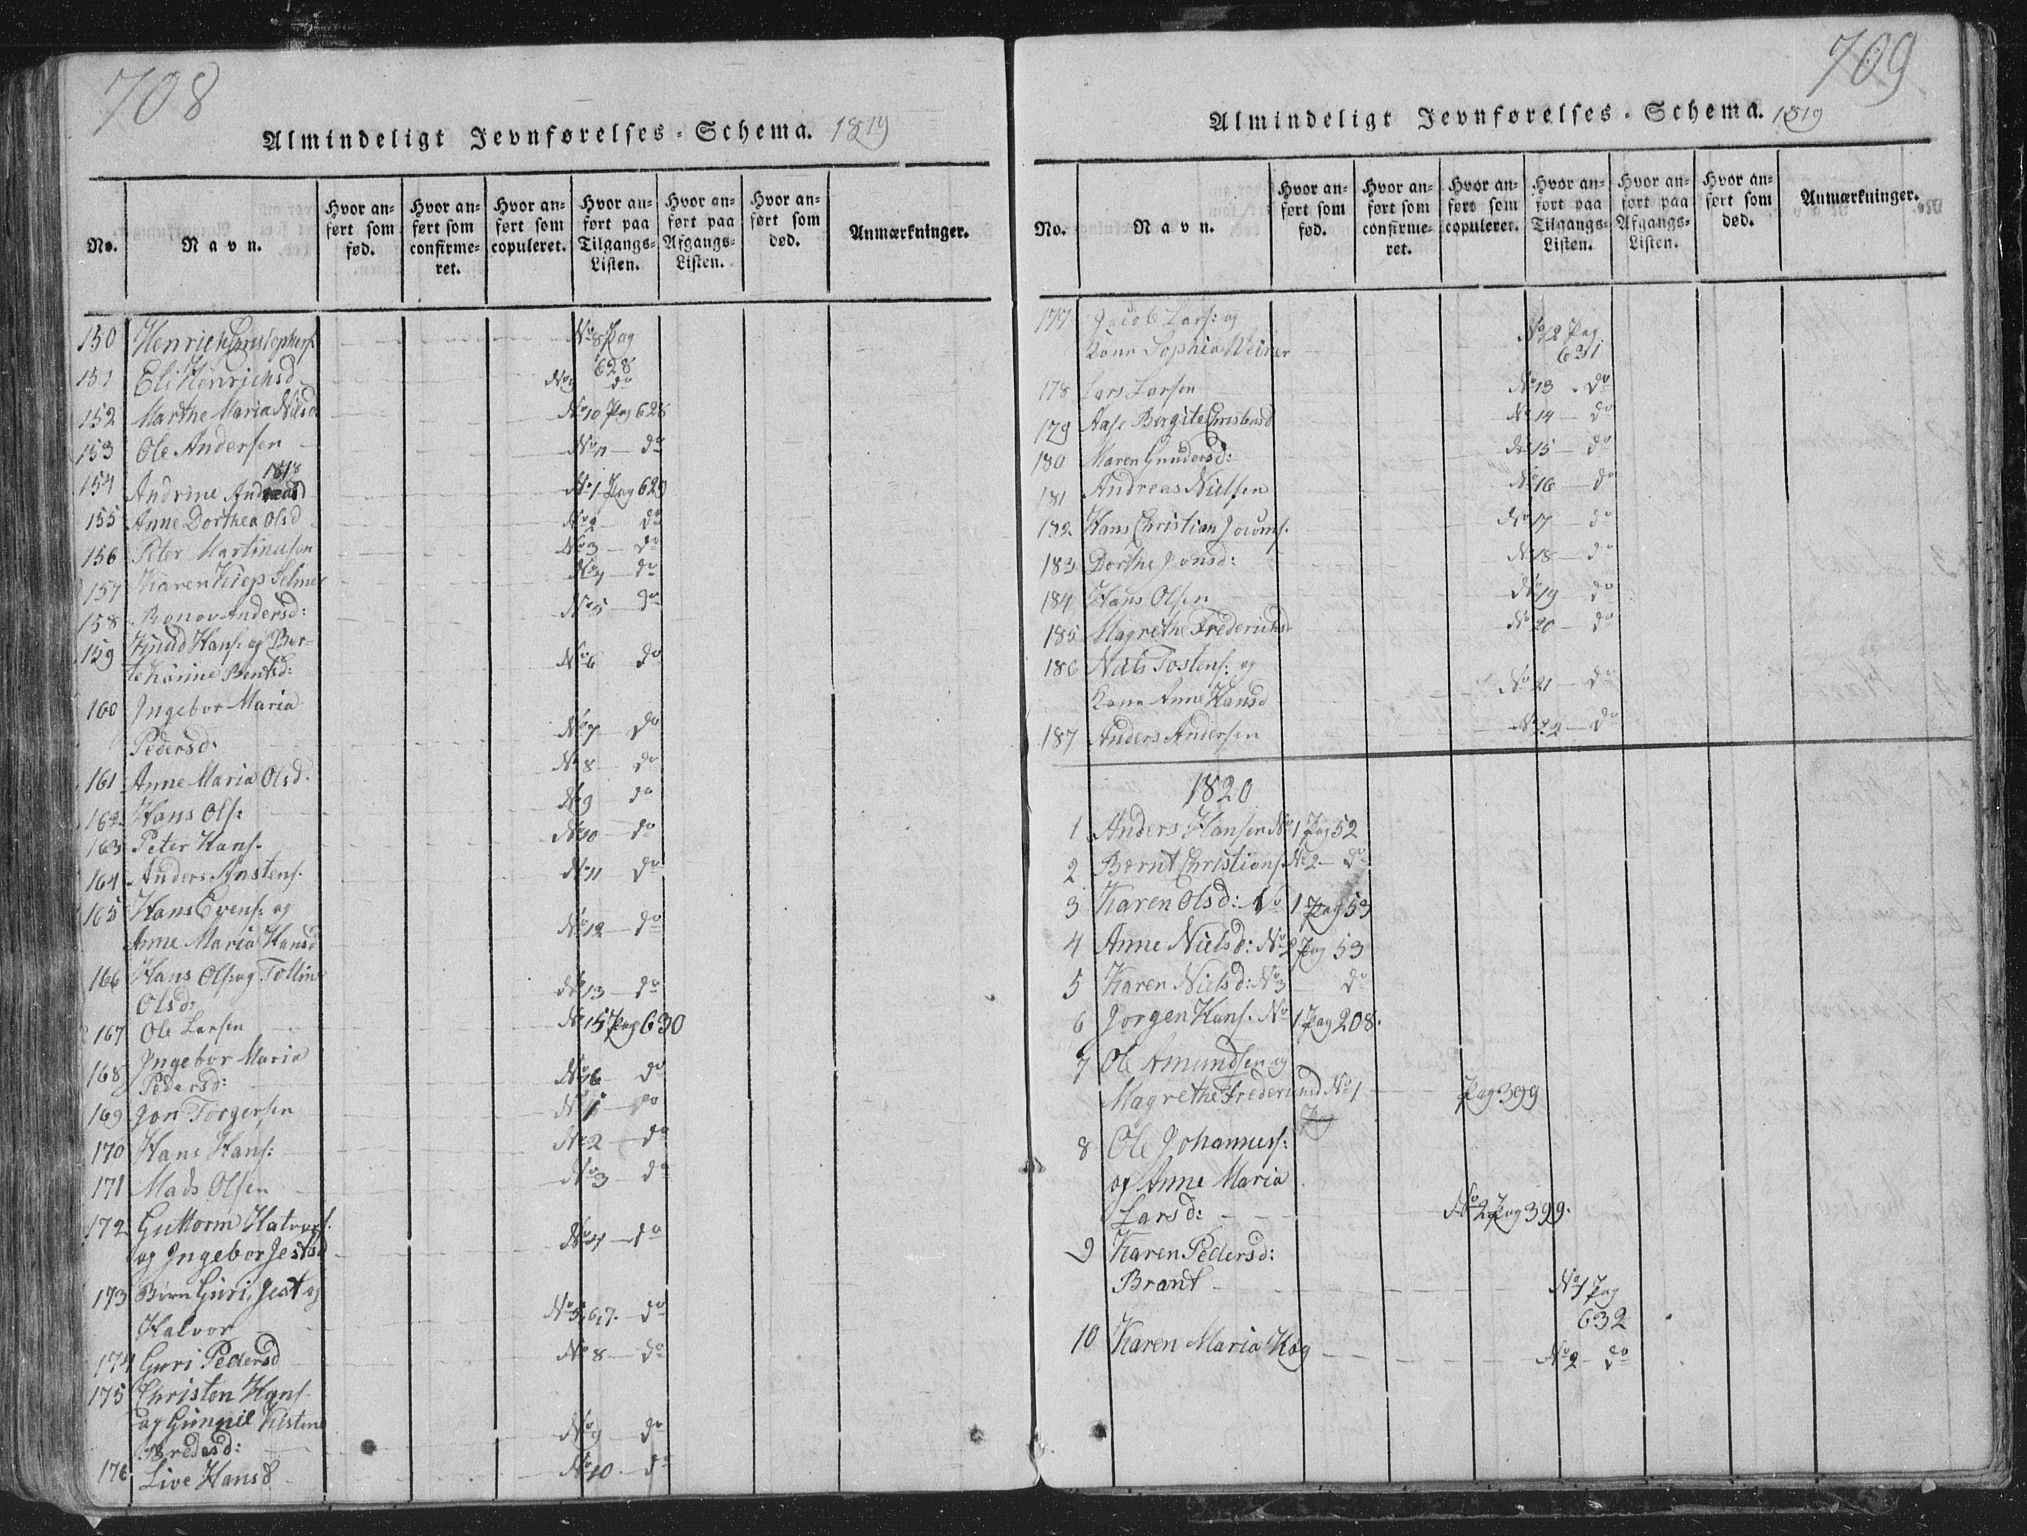 708
Almindeligt Jevnførelses-Schema. 1819
No.
Navn.
Hvor anført som fød.
Hvor anført som confirmeret.
Hvor anført som copuleret.
Hvor anført paa Tilgangs-Listen.
Hvor anført paa Afgangs-Listen.
Hvor anført som død.
Anmærkninger.
150 Henrich Christophers: No 8 Pag 628
151 Eli Henrichsd No 9 do
152 Marthe Maria Nilsd No 10 Pag 628
153 Ole Andersen No 11 do
1818
154 Andrine No 1 Pag 629
155 Anne Dorthea Olsd No 2 do
156 Peter Martinusen No 3 do
157 Karen Selmer No 4 do
158 Ronov Andersd: No 5 do
159 Knud Hans: og Ber-
te Karine Berntsd: No 6 do
160 Ingebor Maria
Pedersd: No 7 do
161 Anne Maria Olsd. No 8 do
162 Hans Ols: No 9 do
163 Peter Hans. No 10 do
164 Anders Anstens. No 11 do
165 Hans Evens: og
Anne Maria Hansd No 12 do
166 Hans Ols: og
Olsd: No 13 do
167 Ole Larsen No 15 Pag 630
168 Ingebor Maria
Pedersd: No 16 do
169 Jon Torgersen No 1 do
170 Hans Hans: No 2 do
171 Mads Olsen No 3 do
172 Guttorm Halvors.
og Ingebor Jestsd No 4 do
173 Børn Guri, Jest og
Halvor No 5, 6, 7. do
174 Guri Pedersd No 8 do
175 Christen Hans.
og Gunnil Kistine
Bredesd: No 9 do
176 Live Hansd No 10 do
709
Almindeligt Jevnførelses-Schema. 1819
No.
Navn.
Hvor anført som fød.
Hvor anført som confirmeret.
Hvor anført som copuleret.
Hvor anført paa Tilgangs-Listen.
Hvor anført paa Afgangs-Listen.
Hvor anført som død.
Anmærkninger.
177 Jacob Lars: og
Kone Sophia No 12 Pag 631
178 Lars Larsen No 13 do
179 Aase Birgite Christensd No 14 do
180 Maren Gundersd: No 15 do
181 Andreas Nielsen No 16 do
182 Hans Christian No 17 do
183 Dorthe Jonsd: No 18 do
184 Hans Olsen No 19 do
185 Magrethe Frederichsd No 20 do
186 Niels Tostens: og
Kone Anne Hansd No 21 do
187 Anders Andersen No 22 do
1820
1 Anders Hansen No 1 Pag 52
2 Bernt Christians. No 2 do
3 Karen Olsd: No 1 Pag 53
4 Anne Nielsd: No 2 Pag 53
5 Karen Nielsd: No 3 do
6 Jörgen Hans. No 1 Pag 208.
7 Ole Amundsen og
Magrethe Frederichsd No 1 Pag 399
8 Ole Johanness:
og Anne Maria
Larsd: No 2 Pag 399.
9 Karen Pedersd:
Brant No 1 Pag 632
10 Karen Maria Kog No 2 do